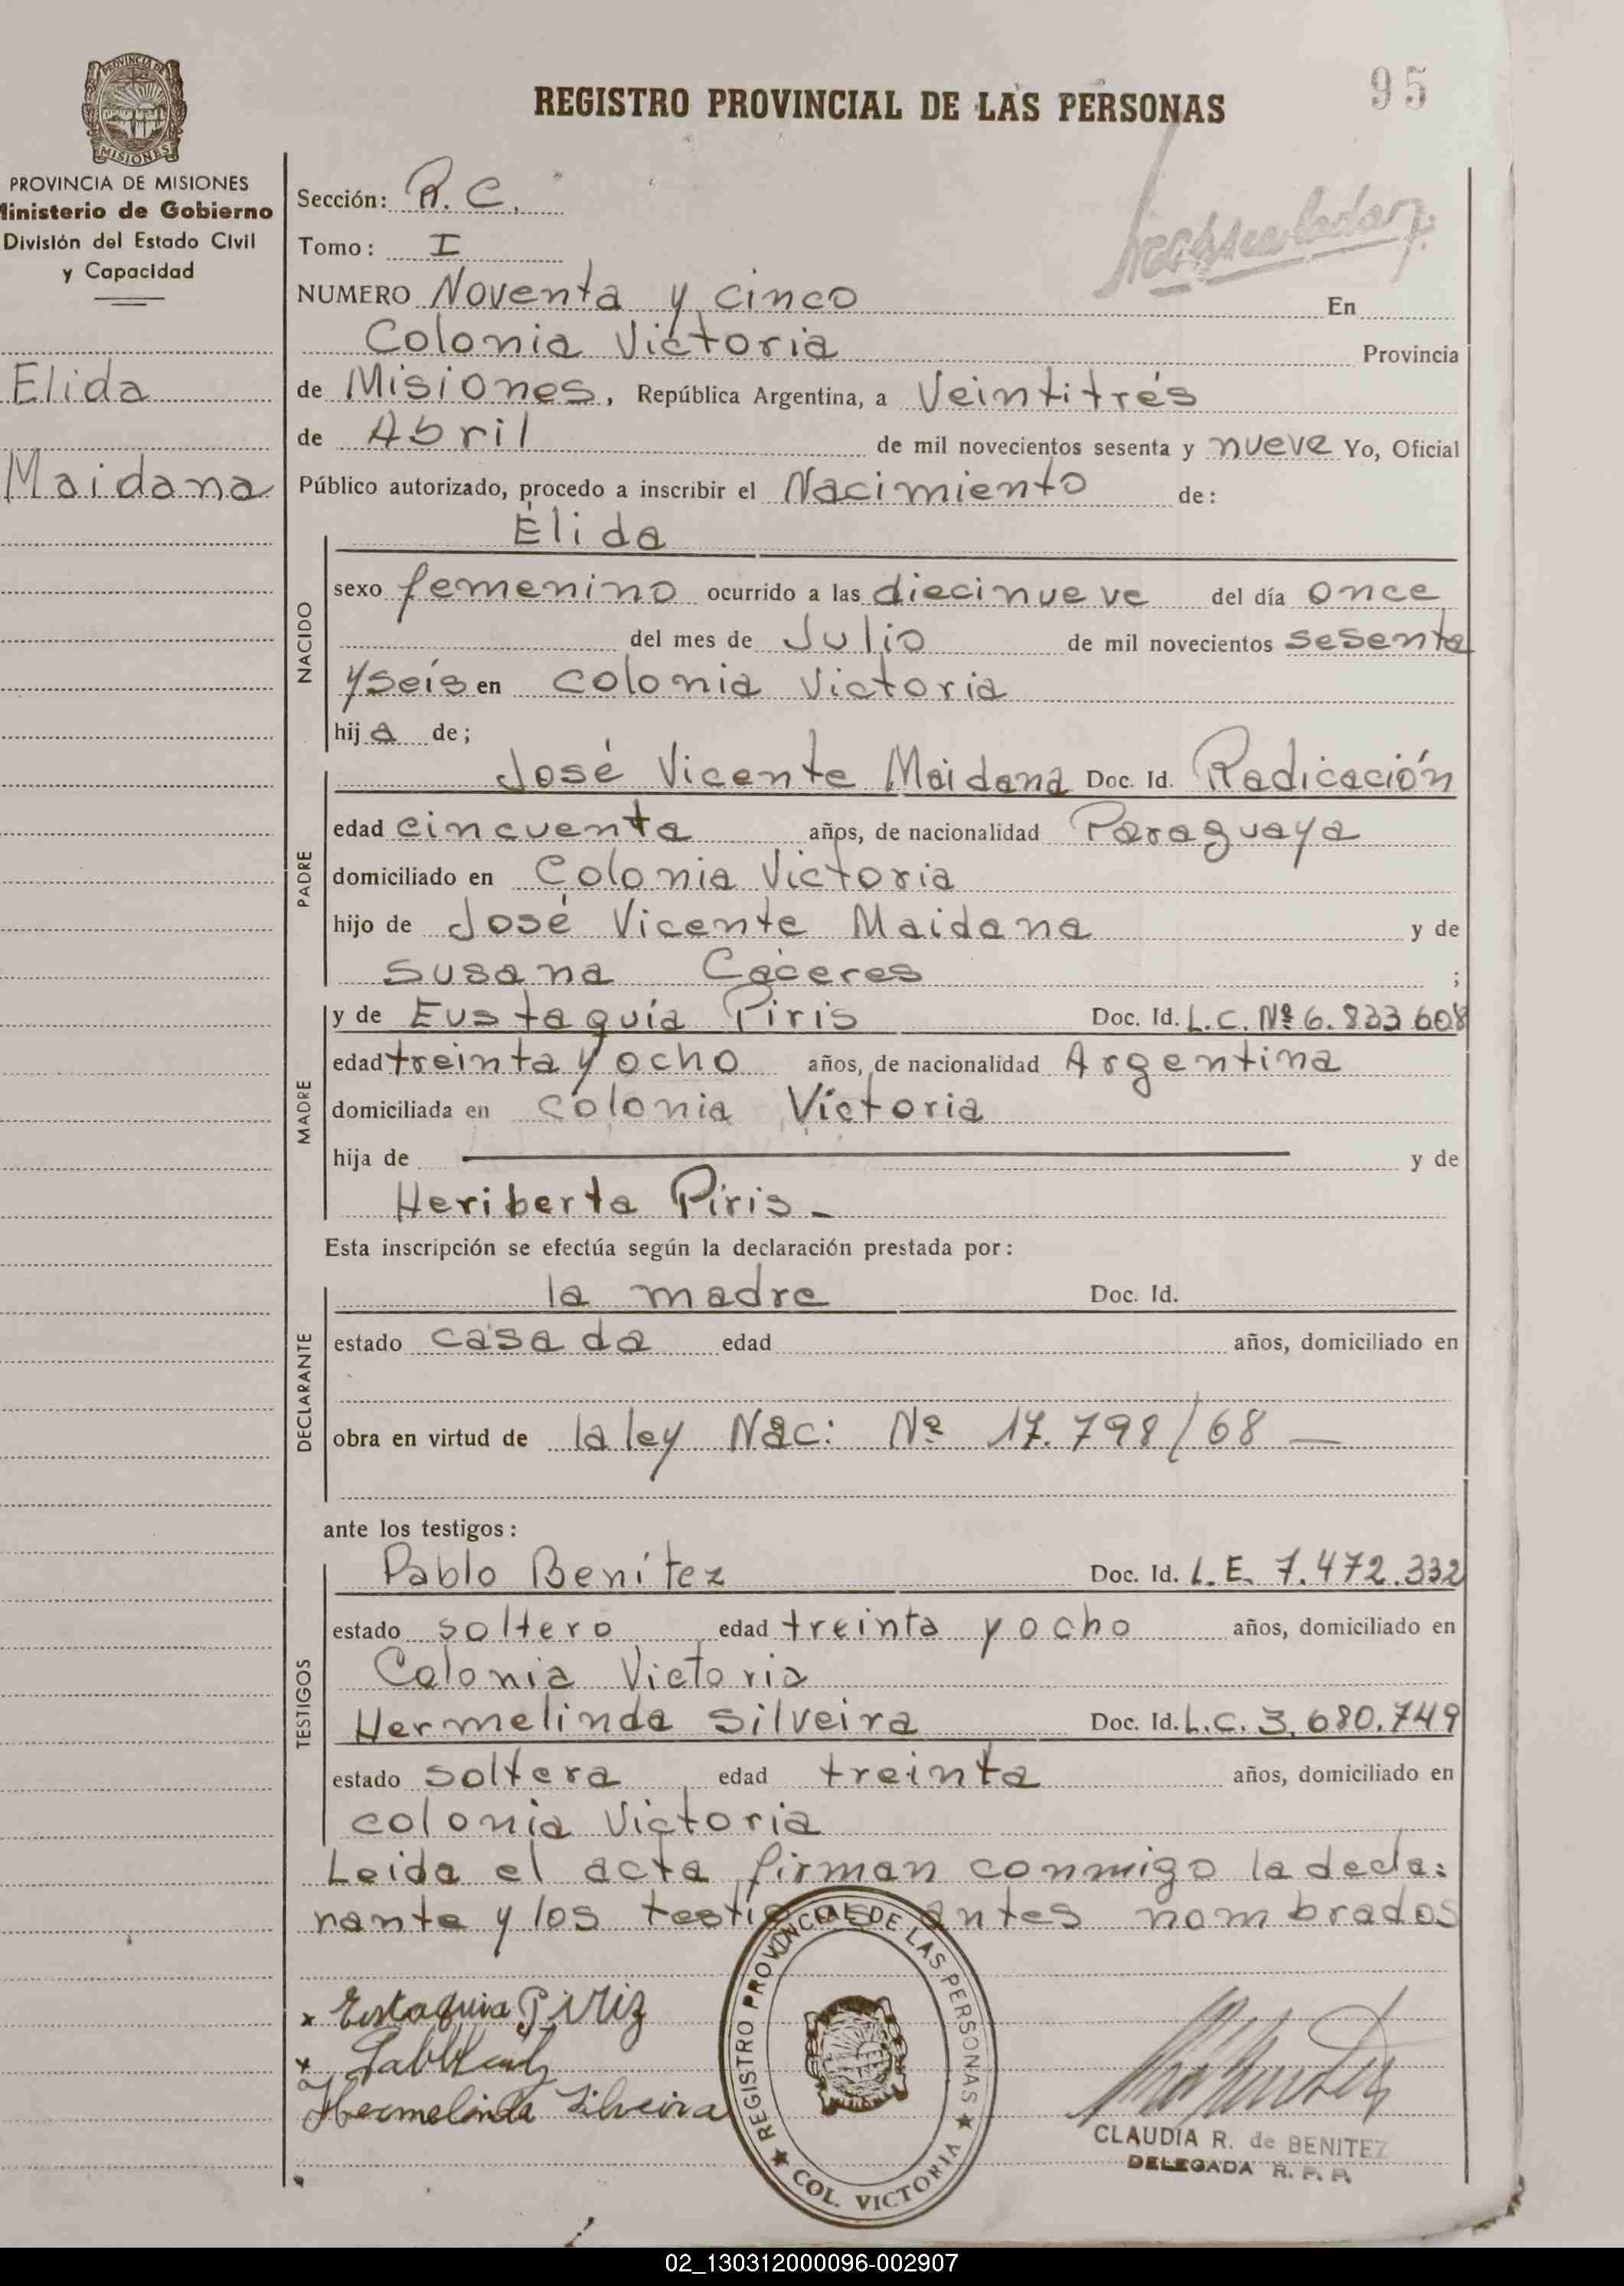 95
REGISTRO PROVINCIAL DE LAS PERSONAS
PROVINCIA DE
MISIONES
PROVINCIA DE MISIONES
Ministerio de Gobierno
División del Estado Civil
y Capacidad
Elida
Maidana
Sección: R. C.
Tomo: I
NUMERO Noventa y cinco En
Colonia Victoria Provincia
de Misiones, República Argentina, a Veintitrés
de Abril de mil novecientos sesenta y nueve Yo, Oficial
Público autorizado, procedo a inscribir el Nacimiento de:
NACIDO
Élida
sexo femenino ocurrido a las diecinueve del día once
del mes de Julio de mil novecientos sesenta
y seis en colonia Victoria
hij a de;
PADRE
José Vicente Maidana Doc. Id. Radicación
edad cincuenta años, de nacionalidad Paraguaya
domiciliado en Colonia Victoria
hijo de José Vicente Maidana y de
Susana Cáceres ;
MADRE
y de Eustaquia Piris Doc. Id. L.C. Nº 6.833608
edad treinta y ocho años, de nacionalidad Argentina
domiciliada en colonia Victoria
hija de y de
Heriberta Piris -
Esta inscripción se efectúa según la declaración prestada por:
DECLARANTE
la madre Doc. Id.
estado casada edad años, domiciliado en
obra en virtud de la ley Nac: Nº 17.798/68 —
ante los testigos:
TESTIGOS
Pablo Benítez Doc. Id. L.E. 7.472.332
estado soltero edad treinta y ocho años, domiciliado en
Colonia Victoria
Hermelinda Silveira Doc. Id. L.C. 3.680.749
estado soltera edad treinta años, domiciliado en
colonia Victoria
Leida el acta firman conmigo la decla:
rante y los testigos antes nombrados
x Estaquia Piriz
x
Hermelinda Silveira
REGISTRO PROVINCIAL DE LAS PERSONAS
COL. VICTORIA
CLAUDIA R. de BENITEZ
DELEGADA R. P. P.
02_130312000096-002907